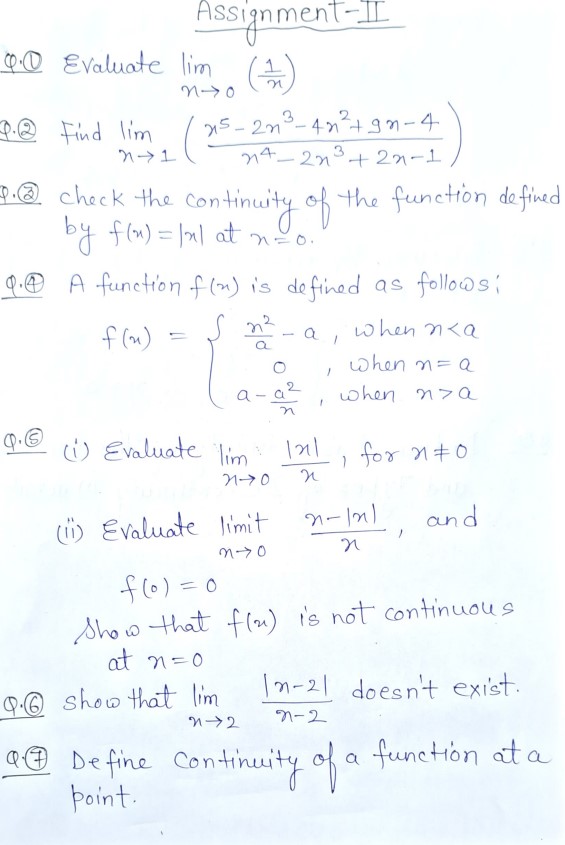 Assignment-II
Q.① Evaluate lim x→0 (1/x)
Q.② Find lim x→1 ( (x⁵ - 2x³ - 4x² + 9x - 4) / (x⁴ - 2x³ + 2x - 1) )
Q.③ check the continuity of the function defined
by f(x) = |x| at x = 0.
Q.④ A function f(x) is defined as follows;
f(x) = { x²/a - a , when x < a
0 , when x = a
a - a²/x , when x > a
Q.⑤ (i) Evaluate lim x→0 |x|/x , for x ≠ 0
(ii) Evaluate limit x→0 (x - |x|)/x , and
f(0) = 0
Show that f(x) is not continuous
at x = 0
Q.⑥ show that lim x→2 |x-2|/(x-2) doesn't exist.
Q.⑦ Define Continuity of a function at a
point.